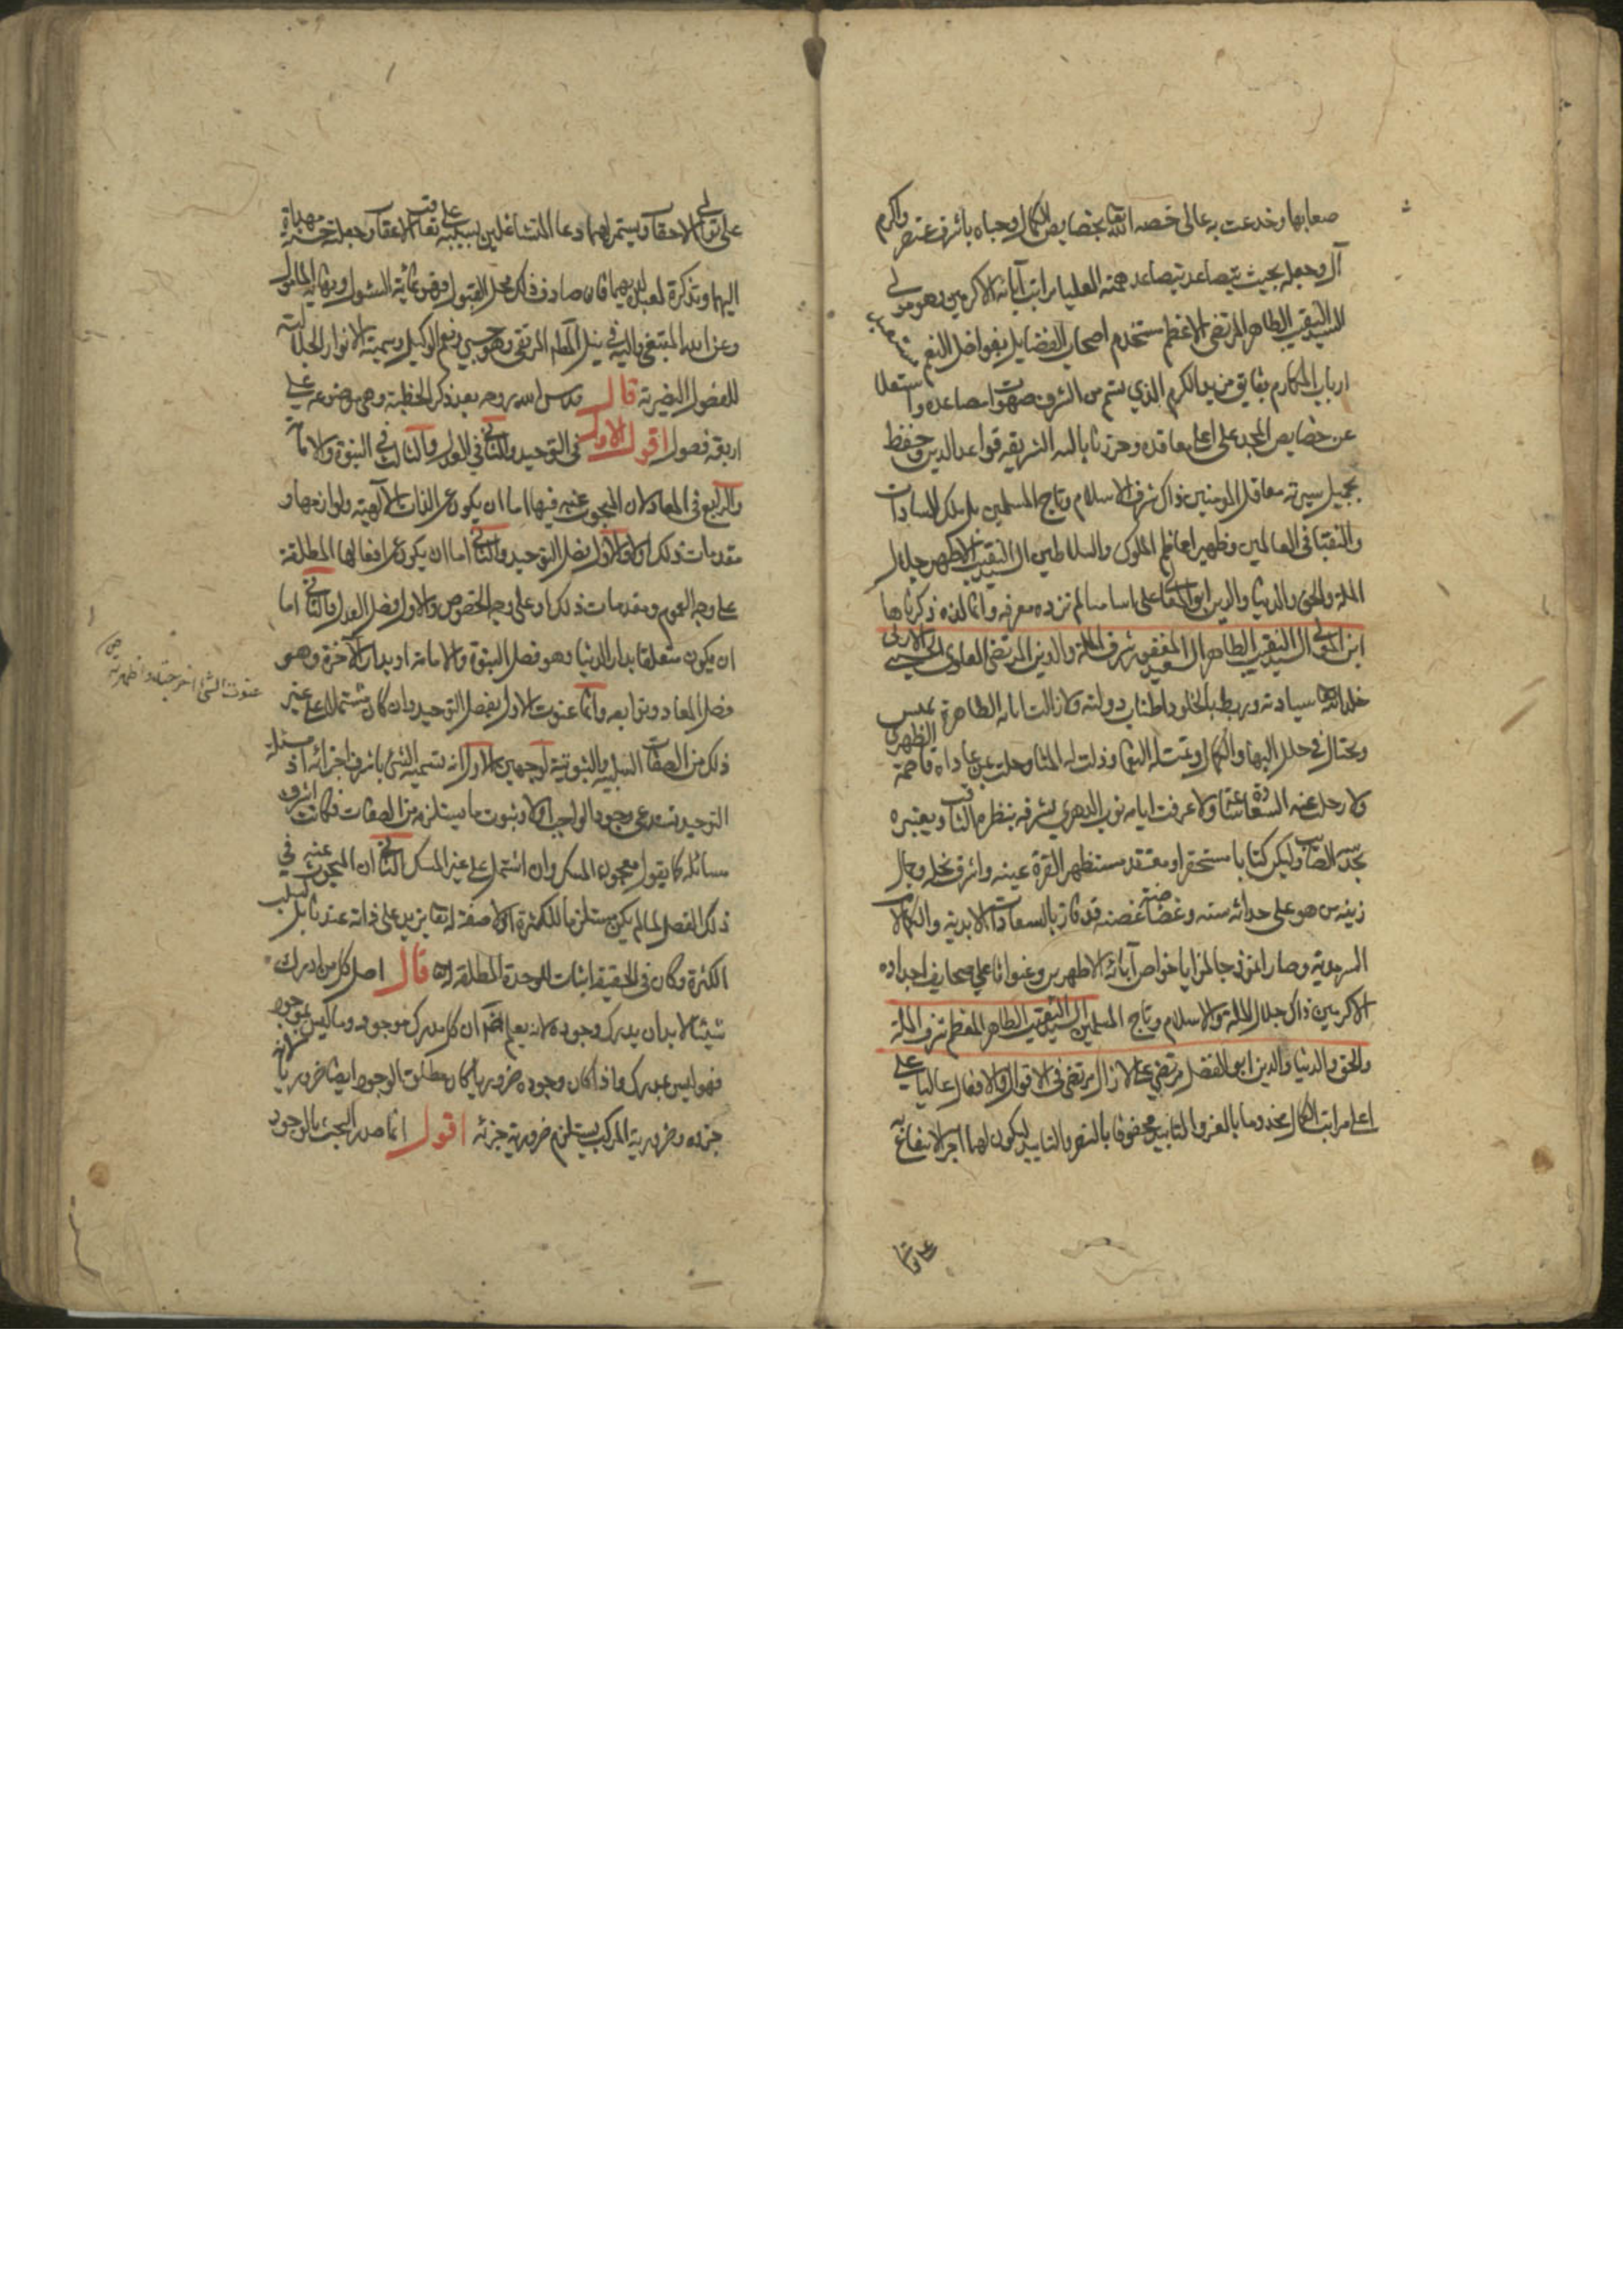 صعابها وخدعت به عالى خصه الله تعالى بخصايص الكمال وحباه باشرف عنصر واكرم
آل وجعله بحيث يتصاعد بتصاعد همته العليا مراتب آبائه الاكرمين وهو مولى
السيد النقيب الطاهر المرتضى الاعظم مستخدم اصحاب الفضايل بفواضل النعم
ارباب المكارم بفايق مزيد الكرم الذي تسنم من الشرف صهوات مصاعده واستعلا
عن خصايص المجد على اعلى معاقده وحرز بابائه الشريفه قواعد الدين وحفظ
بجميل سيرته معاقل المومنين ذاك شرف الاسلام وتاج المسلمين بل ملك السادات
والنقبا فى العالمين وظهير اعاظم الملوك والسلاطين السيد النقيب الاطهر جلال
الملة والحق والدنيا والدين ابو المعالى على اساميا لم تزده معرفة وانما لذة ذكرناها
ابن المولى السيد النقيب الطاهر السعيد المغفور شرف الملة والدين المرتضى العلوى الحسيني الاوى
خلد الله تعالى سيادته وربط بالخلود اطناب دولته ولا زالت ايامه الطاهرة تميس
وتختال فى حلل البها والكمال وتمت له النعما وذلت له وحلت عن عاداه قاصمة الظهر
ولا رحل عنه السعادة ساعة ولا عرفت ايامه نوب الدهر يشرفه بنظره الثاقب ويعتبره
بحدسه الصايب وليكن كتابا مستحقرا ومعتقد مستظهر القرة عينه واشرف نجله وجمال
زينه من هو على حداثة سنه وغضاضة غصنه قد فاز بالسعادات الابدية والكمالات
السرمدية وصار انموذجا لمزايا خواص آبائه الاطهرين وعنوانا على صحايف اجداده
الاكرمين ذاك جلال الملة والاسلام وتاج المسلمين السيد النقيب الطاهر المعظم شرف الملة
والحق والدنيا والدين ابو الفضل مرتضى على لا زال مرتضى فى الاقوال والافعال عاليا على
اعلى مراتب الكمال مخدوما بالعز والتابيد محفوفا بالنصر والتاييد ليكون لهما اجر الانتفاع به
على تعاقب
على توالى الاحقاب ويستمر لهما دعا المشتغلين بسببه على تعاقب الاعقاب وجعلته خدمة مهداة
اليهما وتذكرة لعبد لديهما فان صادف ذلك محل القبول فهو غاية السئول ونهاية المامول
وعز الله المبتغى واليه فى نيل المطالب المرتقى وهو حسبي ونعم الوكيل وسميته الانوار الجلالية
للفصول النصيرية قال قدس الله روحه بعد ذكر الخطبة وهى موضوعه على
اربعة فصول اقول الاول فى التوحيد والثانى فى العدل والثالث فى النبوة والامامة
والرابع فى المعاد لان المبحوث عنه فيها اما ان يكون عن الذات الآلهية ولوازمها و
مقدمات ذلك اولا والاول فصل التوحيد والثانى اما ان يكون عن افعالها المطلقة
على وجه العموم ومقدمات ذلك او على وجه الخصوص والاول فصل العدل والثانى اما
ان يكون متعلقا بدار الدنيا وهو فصل النبوة والامامة او بدار الآخرة وهو
فصل المعاد وتوابعه وانما عنونت الاول بفصل التوحيد وان كان مشتملا على غير
ذلك من الصفات السلبية والثبوتية لوجهين الاول انه تسمية الشئ باشرف اجزائه اذ مسئلة
التوحيد تستدعى وجود الواجب اولا وثبوت ما يستلزمه من الصفات فكانت اشرف
مسائله كما يقول معجون المسك وان اشتمل على غير المسك الثانى ان المبحوث عنه فى
ذلك الفصل لما لم يكن مستلزما للكثرة اذ لا صفة له تعالى تزيد على ذاته عندنا بل لسلب
الكثرة وكان فى الحقيقة اثبات للوحدة المطلقة قال اصل كل من ادرك
شيئا لابد ان يدرك وجوده لانه يعلم ان كل مدرك موجود وما ليس بموجود
فهو ليس بمدرك واذا كان وجوده ضروريا كان مطلق الوجود ايضا ضروريا لانه
جزءه وضرورية المركب يستلزم ضرورية جزئه اقول انما صدر البحث بالوجود
عنونت الشئ اخرجته واظهرته